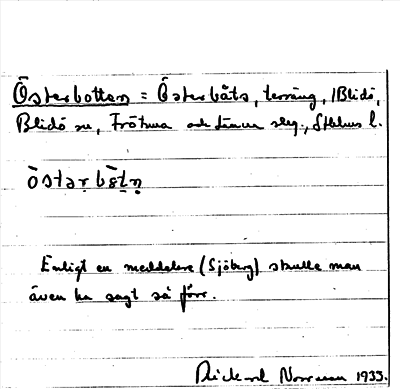 Österbotten = Österbåts, terräng, i Blidö,
Blidö sn, Frötuna och Länna slg., Sthlms l.
östərbɛtn
Enligt en meddelare (Sjöberg) skulle man
även ha sagt så förr.
Rickard Norrman 1933.